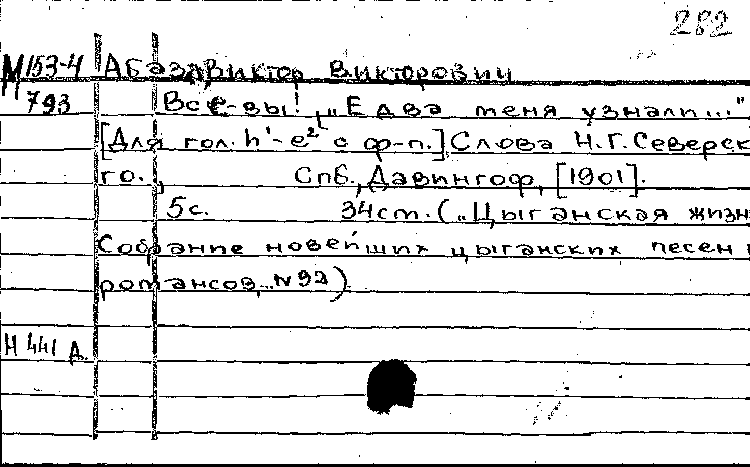 282
М153-4 Абаза, Виктор Викторович
793 Все-вы! „Едва меня узнали..."
[Для гол. h¹-e² с ф-п.] Слова Н.Г.Северск
го. Спб., Давингоф, [1901].
5с. 34см. („Цыганская жизн
Собрание новейших цыганских песен и
романсов„. №92)
Н 441 д.